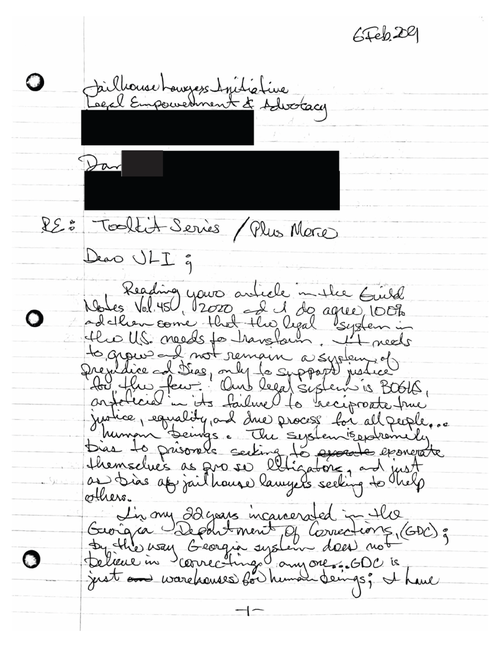 6 Feb. 2021
Jailhouse Lawyers Initiative
Legal Empowerment & Advotacy
Dan
RE: Toolkit Series / Plus More
Dear JLI;
Reading yours article in the Guild
Notes Vol. 45, 2020 and I do agree 100%
and then some that the legal system in
the U.S. needs to transform. It needs
to grow and not remain a system of
prejudice and bias, only to support justice
for the few. Our legal system is BOGUS,
artificial in its failure to reciprocate true
justice, equality, and due process for all people...
human beings. The system is extremely
bias to prisoners seeking to exonerate
themselves as pro se litigators, and just
as bias of jailhouse lawyers seeking to help
others.
In my 22 years incarcerated in the
Georgia Department of Corrections, (GDC);
by the way Georgia system does not
believe in correcting anyone... GDC is
just warehouses for human beings; I have
-1-